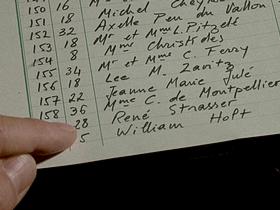 150 16 Michel
151 18 Axelle Pen du Vallon
152 32 Mr et Mme L. Pitzelt
153 18 Mme Christides
154 8 Mr et Mme C. Ferry
155 34 Lee M. Zavitz
156 18 Jeanne Marie Julé
157 22 Mme C. de Montpellier
158 36 René Strasser
28 William Hoft
5